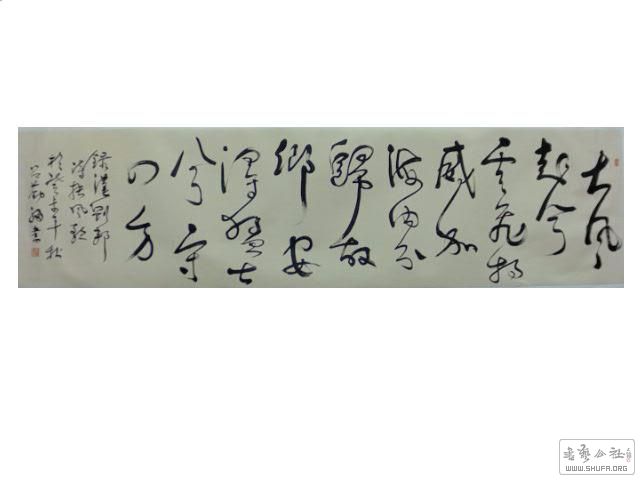 大風
起兮
雲飛揚
威加
海內兮
歸故
鄉安
得猛士
兮守
四方
錄漢劉邦
詩大風歌
書藝公社
WWW.SHUFA.ORG